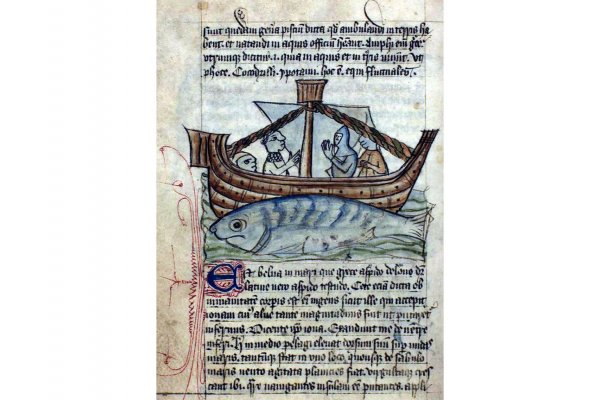 sunt quedam gen̄a pisciū dicta qd̄ ambulandi in terris ha
bent. et natandi in aquis officiū hēant. Amphi em̄ grec
utrumque dicitur .i. quia in aquis et in t̄ris uiuit. Vt
phoce. Cocodrilli. ypotami. hoc ē. equi fluctuales.
Est belua in mari que grece aspido delone dr̄
latine uero aspido testudo. Cete eciā dicta ob
inmanitatē corp̄is est em̄ ingens sicut ille qui excepit
ionam cui᷒ alue tante magnitudinis fuit ut putaret᷑
infernus. Dicente ip̄o iona. Exaudiuit me de uentre
inferi. in medio pelagi eleuat dorsum suū sup̄ undas
maris. tantūque stat in uno loco. quousque de sabulo
maris uento agitata planicies fiat. uirgultaque cres
cant ibi. nauigantes insulam eē putantes. appli